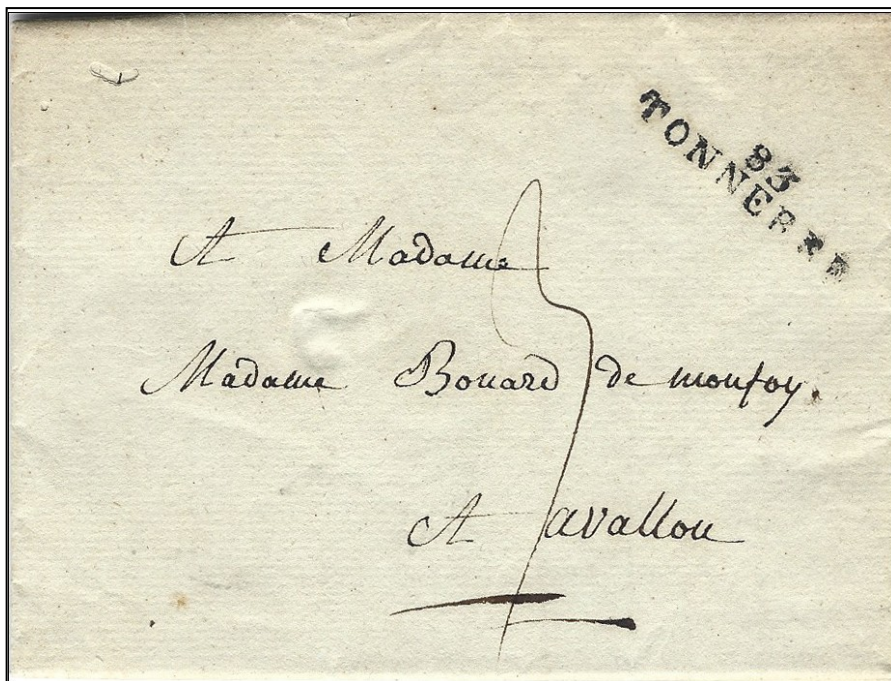 83
TONNERRE
A Madame
Madame Bouard de monfoy.
A avallon
3